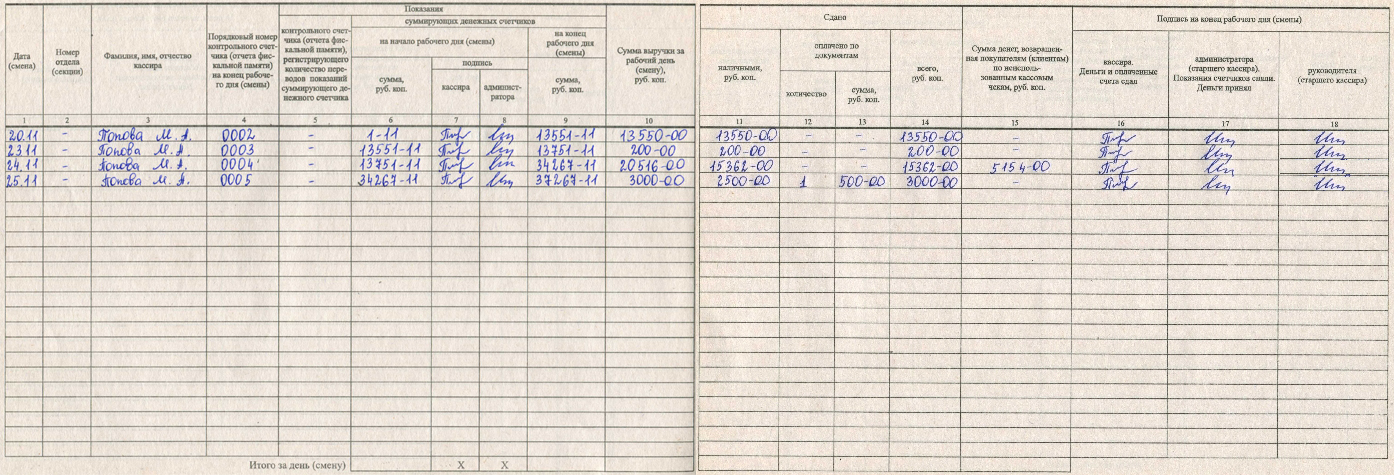 Показания
суммирующих денежных счетчиков
Дата
(смена)
Номер
отдела
(секции)
Фамилия, имя, отчество
кассира
Порядковый номер
контрольного счет-
чика (отчета фис-
кальной памяти)
на конец рабоче-
го дня (смены)
контрольного счет-
чика (отчета фис-
кальной памяти),
регистрирующего
количество пере-
водов показаний
суммирующего де-
нежного счетчика
на начало рабочего дня (смены)
сумма,
руб. коп.
подпись
кассира
админист-
ратора
на конец
рабочего дня
(смены)
сумма,
руб. коп.
Сумма выручки за
рабочий день
(смену),
руб. коп.
1 2 3 4 5 6 7 8 9 10
20.11 - Попова М. А. 0002 - 1-11 13551-11 13550-00
23.11 - Попова М. А. 0003 - 13551-11 13751-11 200-00
24.11 - Попова М. А. 0004 - 13751-11 34267-11 20516-00
25.11 - Попова М. А. 0005 - 34267-11 37267-11 3000-00
Итого за день (смену) X X
Сдано
наличными,
руб. коп.
оплачено по
документам
количество
сумма,
руб. коп.
всего,
руб. коп.
Сумма денег, возвращен-
ная покупателям (клиентам)
по неисполь-
зованным кассовым
чекам, руб. коп.
Подпись на конец рабочего дня (смены)
кассира.
Деньги и оплаченные
счета сдал
администратора
(старшего кассира).
Показания счетчиков снял.
Деньги принял
руководителя
(старшего кассира)
11 12 13 14 15 16 17 18
13550-00 - - 13550-00 -
200-00 - - 200-00 -
15362-00 - - 15362-00 5154-00
2500-00 1 500-00 3000-00 -